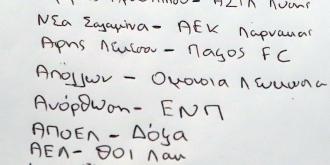 ΑΣΙΛ Λύσης
Νέα Σαλαμίνα - ΑΕΚ Λάρνακας
Άρης Λεμεσού - Πάφος FC
Απόλλων - Ομόνοια Λευκωσία
Ανόρθωση - ΕΝΠ
ΑΠΟΕΛ - Δόξα
ΑΕΛ - ΘΟΙ Λακ